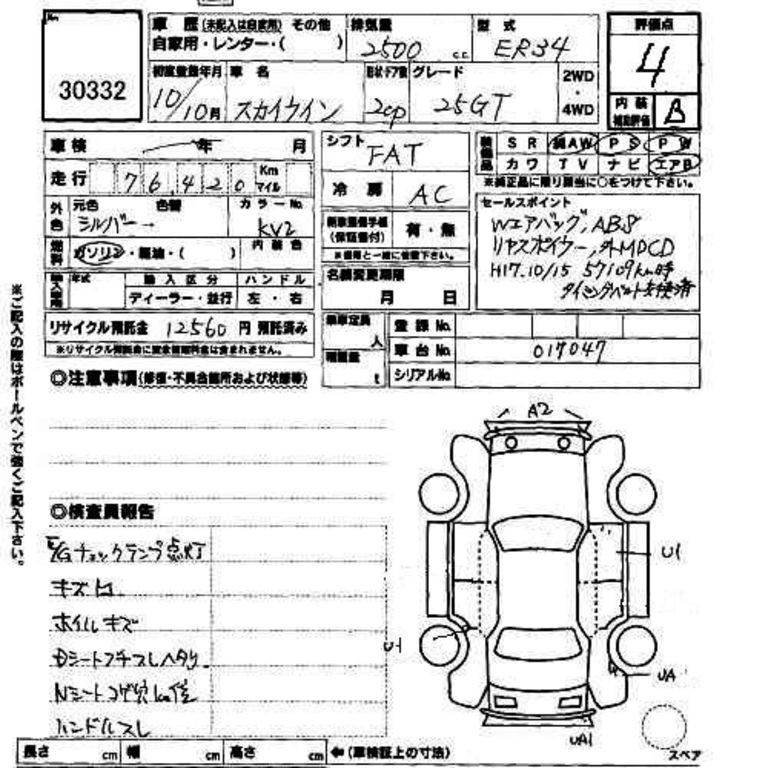 No.
30332
車歴(未記入は自家用) その他
自家用・レンター・( )
排気量
2500 c.c.
型式
ER34
評価点
4
内装
補助評価
B
初度登録年月
10/10月
車名
スカイライン
ドア数
2cp
グレード
25GT
2WD
・
4WD
車検 年 月
走行 76,420 Km
マイル
外色
元色 色替
シルバー
カラーNo.
KV2
燃料
ガソリン・軽油・( )
内装色
年式
輸入区分
ハンドル
ディーラー・並行
左・右
リサイクル預託金 12560 円 預託済み
※リサイクル預託金に資金管理料金は含まれません。
シフト
FAT
冷房
AC
新車整備手帳
(保証書付)
有・無
※書類と一緒に後送下さい。
名義変更期限
月 日
乗車定員
人
積載量
t
装備品
SR 純AW PS PW
カワ TV ナビ エアB
※純正品に限り該当に○をつけて下さい。
セールスポイント
Wエアバッグ, ABS
リヤスポイラー, 外MDCD
H17.10/15 57109km時
タイミングベルト交換済
登録No.
車台No. 017047
シリアルNo.
※ご記入の際はボールペンで強くご記入下さい。
◎注意事項(修復・不具合箇所および状態等)
◎検査員報告
E/Gチェックランプ点灯
キズ凹
ホイルキズ
Dシートフチスレヘタリ
Nシートコゲ穴
ハンドルスレ
A2
U1
U1
UA
UA1
スペア
長さ cm 幅 cm 高さ cm ←(車検証上の寸法)